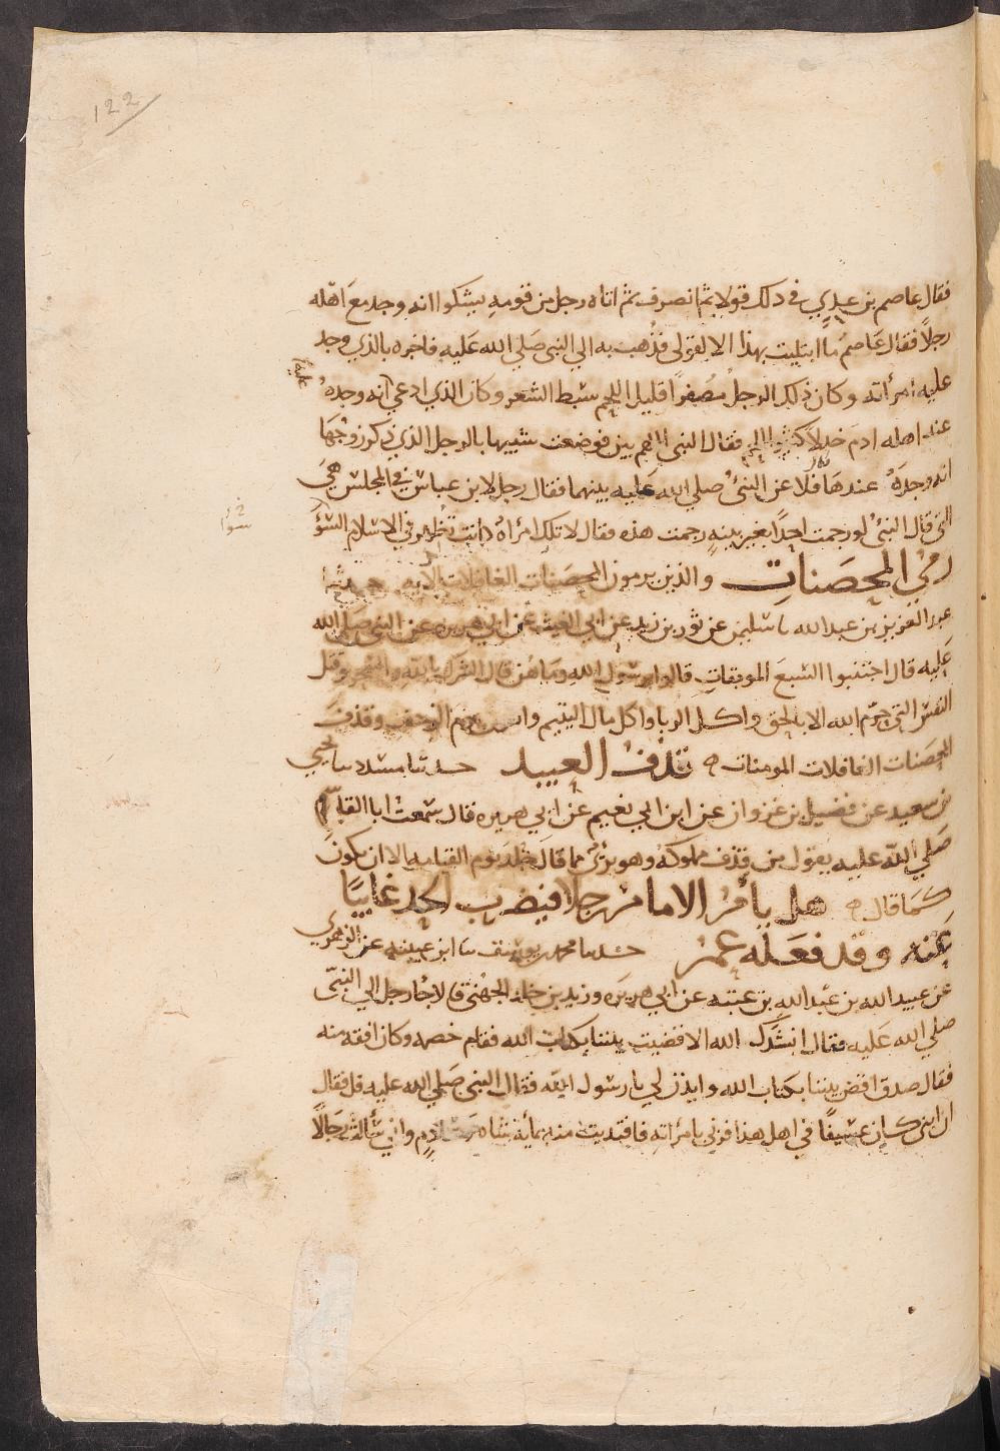 122
فقال عاصم بن عدي في ذلك قولا ثم انصرف ثم اتاه رجل من قومه يشكوا انه وجد مع اهله
رجلا فقال عاصم ما ابتليت بهذا الا لقولي فذهب به الي النبي صلي الله عليه فاخبره بالذي وجد
عليه امرأته وكان ذلك الرجل مصفرا قليل اللحم سبط الشعر وكان الذي ادعي انه وجده
عند اهله ادم خدلا كثير اللحم فقال النبي اللهم بين فوضعت شبيها بالرجل الذي ذكر زوجها
انه وجده عندها فلاعن النبي صلي الله عليه بينهما فقال رجل لابن عباس في المجلس هي
التي قال النبي لو رجمت احدا بغير بينه رجمت هذه فقال لا تلك امراة كانت تظهر في الاسلام السوء
رمي المحصنات والذين يرمون المحصنات الغافلات الايه حدثنا
عبد العزيز بن عبد الله نا سليمن عن ثور بن زيد عن ابي الغيث عن ابي هريره عن النبي صلي الله
عليه قال اجتنبوا السبع الموبقات قالوا يرسول الله وما هن قال الشرك بالله والسحر وقتل
النفس التي حرم الله الا بالحق واكل الربا واكل مال اليتيم والتولي يوم الزحف وقذف
المحصنات الغافلات المومنات ه قذف العبيد حدثنا مسدد نا يحيي
بن سعيد عن فضيل بن غزوان عن ابن ابي نعيم عن ابي هريره قال سمعت ابا القاسم
صلي الله عليه يقول من قذف مملوكه وهو بريء مما قال جلد يوم القيامه الا ان يكون
كما قال ه هل يأمر الامام رجلا فيضرب الحد غايبا
عنه وقد فعله عمر حدثنا محمد بن يوسف نا ابن عيينه عن الزهري
عن عبيد الله بن عبد الله بن عتبه عن ابي هريره وزيد بن خلد الجهني قالا جا رجل الي النبي
صلي الله عليه فقال انشدك الله الا قضيت بيننا بكتاب الله فقام خصمه وكان افقه منه
فقال صدق اقض بيننا بكتاب الله وايذن لي يا رسول الله فقال النبي صلي الله عليه قل فقال
ان ابني كان عسيفا في اهل هذا فزني بامرأته فافتديت منه بمأية شاه وخادم واني سألت رجالا